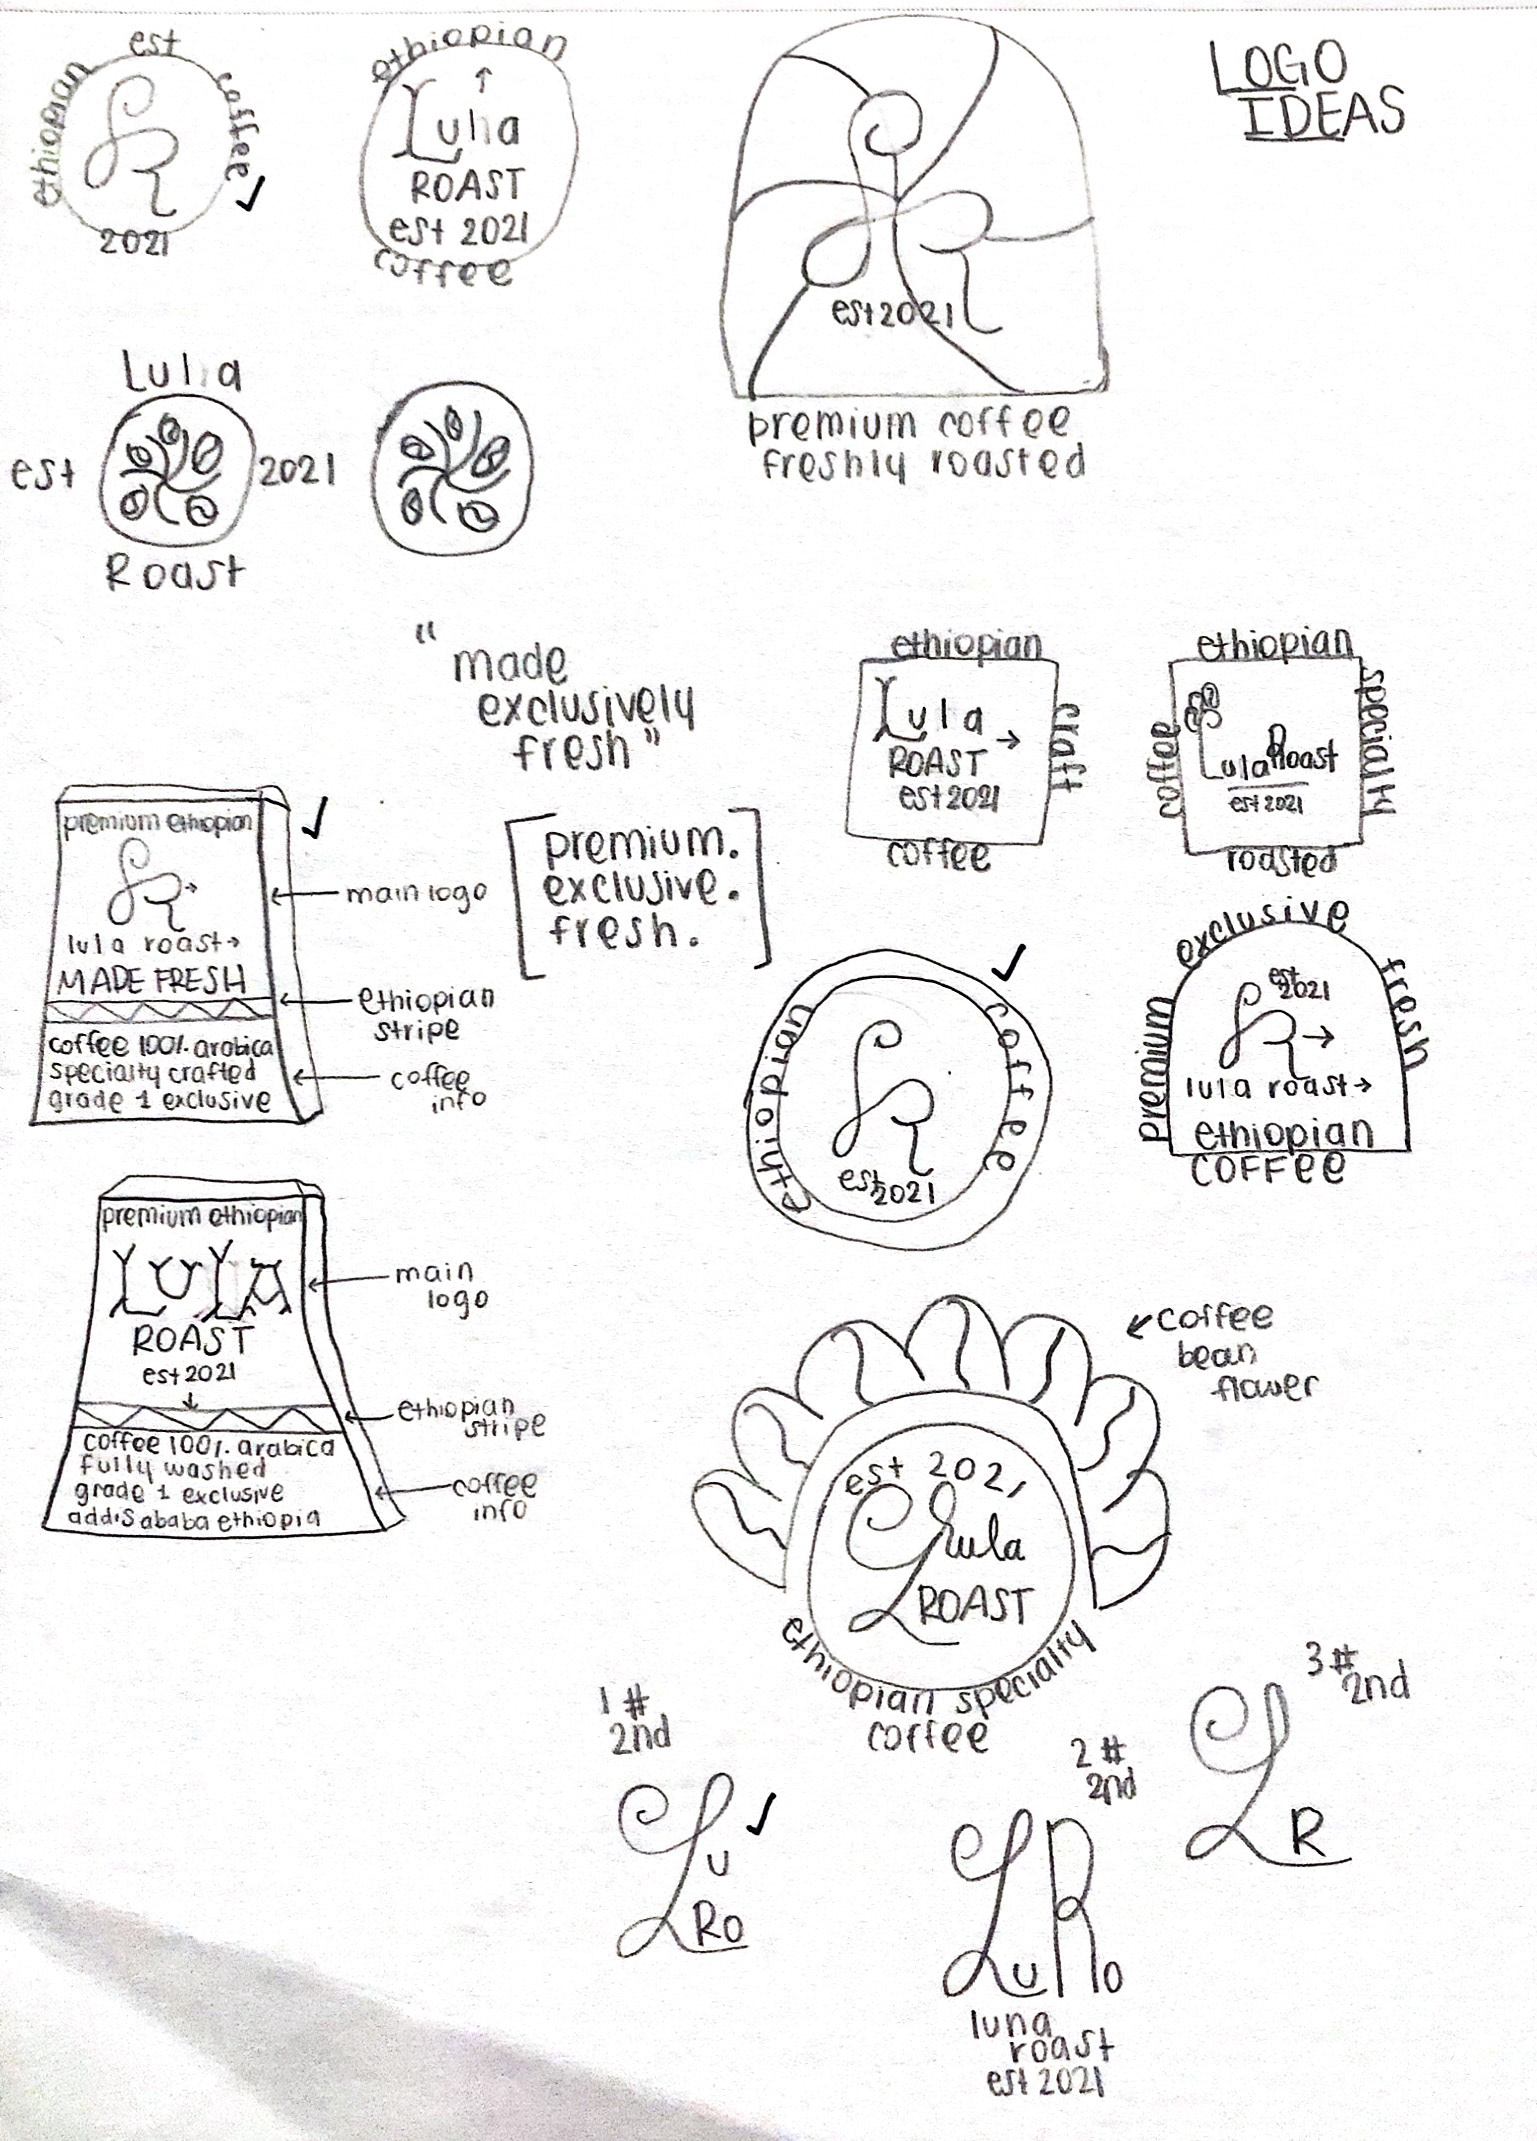 LOGO
IDEAS
est
ethiopian
coffee
2021
ethiopian
Lula
ROAST
est 2021
coffee
est 2021
premium coffee
freshly roasted
Lula
est
2021
Roast
"made
exclusively
fresh"
ethiopian
Lula
ROAST
est 2021
craft
coffee
ethiopian
coffee
Lula Roast
est 2021
specialty
roasted
premium ethiopian
lula roast
MADE FRESH
coffee 100% arabica
specialty crafted
grade 1 exclusive
main logo
ethiopian
stripe
coffee
info
[premium.
exclusive.
fresh.]
ethiopian
coffee
est 2021
exclusive
premium
fresh
est
2021
lula roast
ethiopian
COFFEE
premium ethiopian
LULA
ROAST
est 2021
coffee 100% arabica
fully washed
grade 1 exclusive
addis ababa ethiopia
main
logo
ethiopian
stripe
coffee
info
coffee
bean
flower
est 202,
Lula
ROAST
ethiopian specialty
coffee
1#
2nd
Lu
Ro
2#
2nd
LuRo
luna
roast
est 2021
3#
2nd
LR